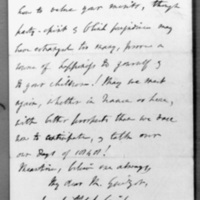 how to value your merits, though
party-spirit & blind prejudices may
have estranged too many, prove a
source of happiness to yourself &
to your children! May we meet
again, whether in France or here,
with better prospects than we have
now to anticipate, & talk over
our days of 1840!
Meantime, believe me always,
My dear Mr Guizot,